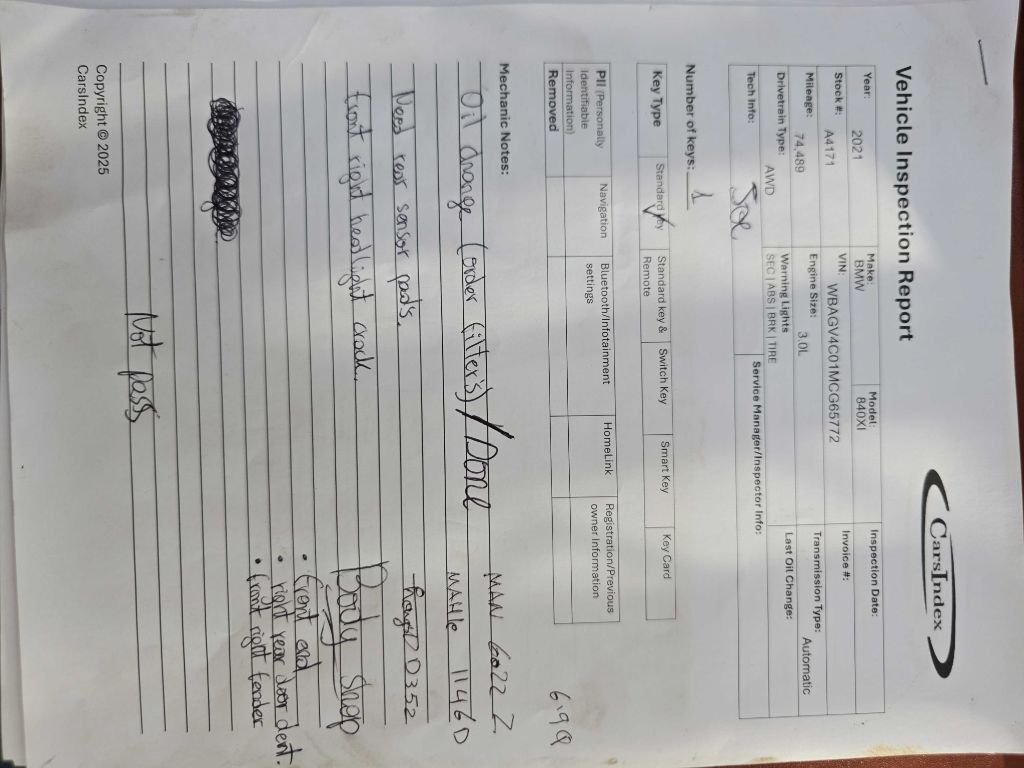 Vehicle Inspection Report
CarsIndex
Year: 2021 Make: BMW Model: 840XI Inspection Date:
Stock #: A4171 VIN: WBAGV4C01MCG65772 Invoice #:
Mileage: 74,489 Engine Size: 3.0L Transmission Type: Automatic
Drivetrain Type: AWD Warning Lights SEC | ABS | BRK | TIRE Last Oil Change:
Tech Info: Service Manager/Inspector Info:
Number of keys: 1
Key Type Standard key ✓ Standard key & Remote Switch Key Smart Key Key Card
PII (Personally Identifiable Information) Navigation Bluetooth/Infotainment settings HomeLink Registration/Previous owner Information
Removed
6.9q
Mechanic Notes:
MAN 6022 Z
Oil change (order filter's) / Done
MAHle 1146D
Need rear sensor pads.
D352
front right headlight crack.
Body shop
• front end
• right rear door dent.
• front right fender
Not pass
Copyright © 2025
CarsIndex